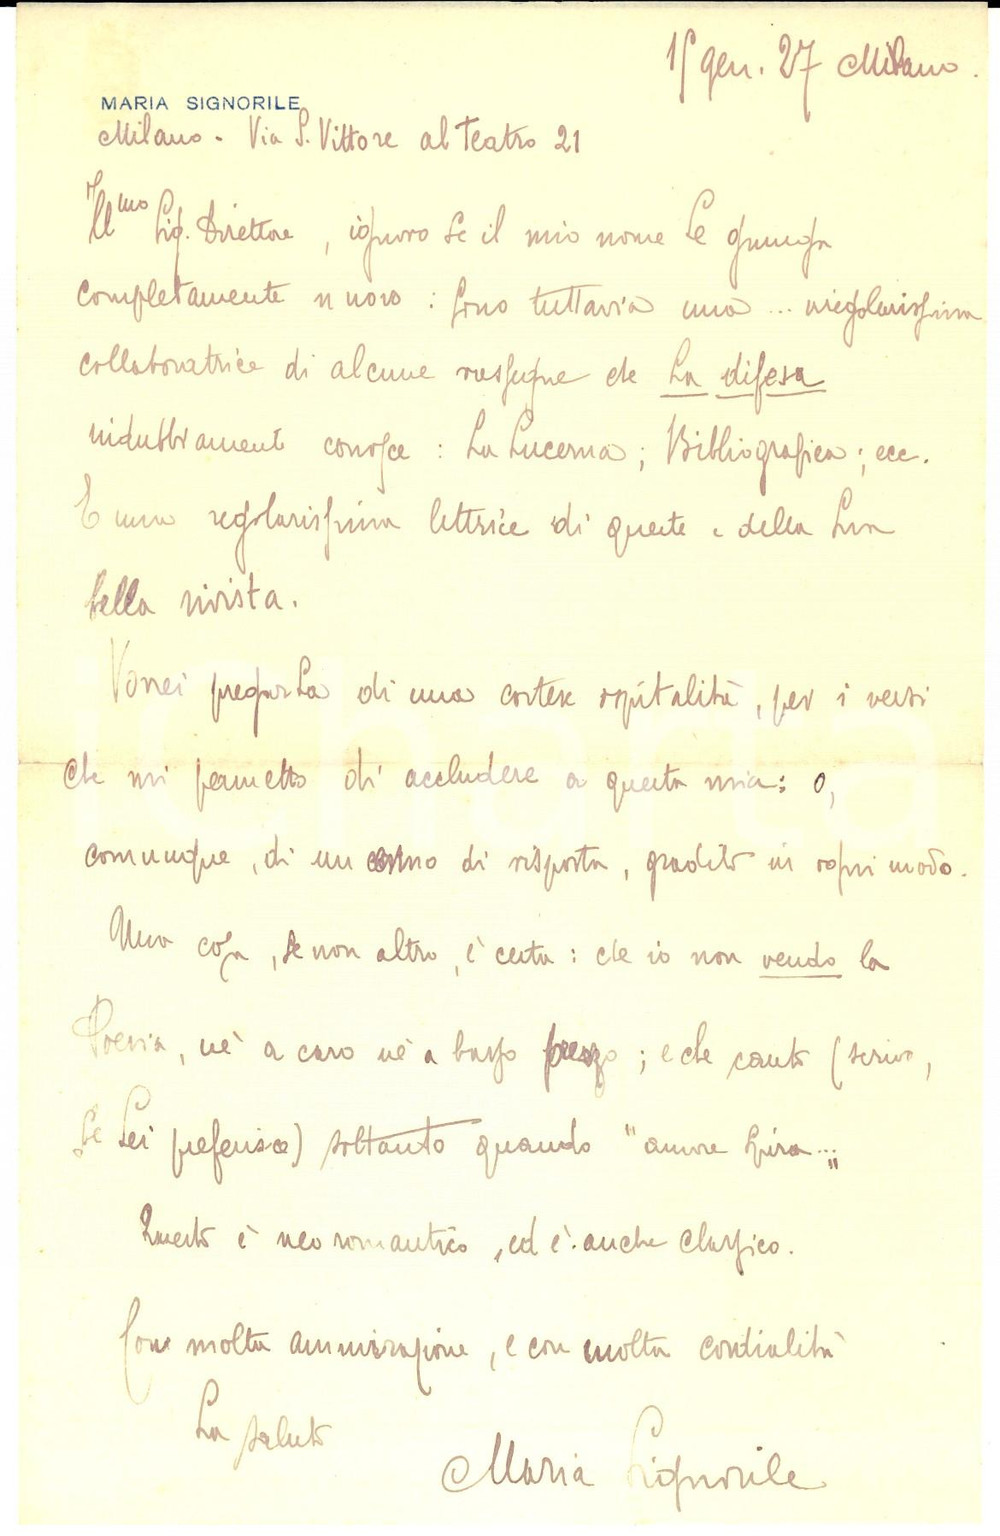 15 gen. 27 Milano.
MARIA SIGNORILE
Milano - Via S. Vittore al Teatro 21
Ill.mo Sig. Direttore, ignoro se il mio nome Le giunga
completamente nuovo: sono tuttavia una ... irregolarissima
collaboratrice di alcune rassegne che La difesa
indubbiamente conosce: La Lucerna; Bibliografica; ecc.
E una regolarissima lettrice di queste e della Sua
bella rivista.
Vorrei pregarLa di una cortese ospitalità, per i versi
che mi permetto di accludere a questa mia: o,
comunque, di un cenno di risposta, gradito in ogni modo.
Una cosa, se non altro, è certa: che io non vendo la
Poesia, nè a caro nè a basso prezzo; e che canto (scrivo,
se Lei preferisce) soltanto quando "amore spira..."
Questo è neo romantico, ed è anche classico.
Con molta ammirazione, e con molta cordialità
La saluto
Maria Signorile